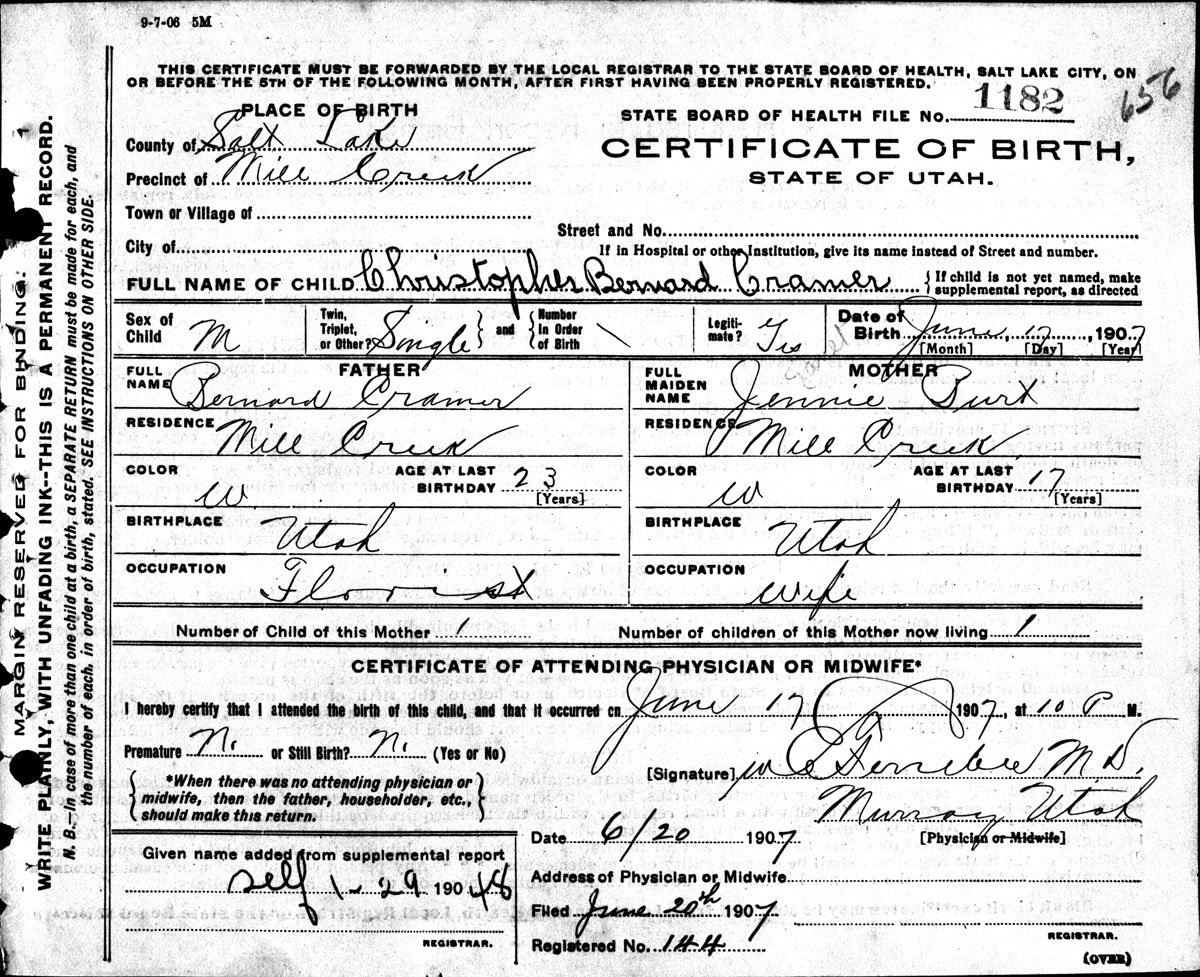 9-7-06 5M
THIS CERTIFICATE MUST BE FORWARDED BY THE LOCAL REGISTRAR TO THE STATE BOARD OF HEALTH, SALT LAKE CITY, ON
OR BEFORE THE 5TH OF THE FOLLOWING MONTH, AFTER FIRST HAVING BEEN PROPERLY REGISTERED.
656
PLACE OF BIRTH
STATE BOARD OF HEALTH FILE No. 1182
County of Salt Lake
CERTIFICATE OF BIRTH,
Precinct of Mill Creek
STATE OF UTAH.
Town or Village of
Street and No.
City of
If in Hospital or other Institution, give its name instead of Street and number.
FULL NAME OF CHILD Christopher Bernard Cramer { If child is not yet named, make supplemental report, as directed
Sex of Child M
Twin, Triplet, or Other? Single } and { Number in Order of Birth \
Legiti-mate? Yes
Date of Birth June 17, 1907
[Month] [Day] [Year]
FATHER
FULL NAME Bernard Cramer
MOTHER
FULL MAIDEN NAME Jennie Burt
RESIDENCE Mill Creek
RESIDENCE Mill Creek
COLOR W. AGE AT LAST BIRTHDAY 23 [Years]
COLOR W AGE AT LAST BIRTHDAY 17 [Years]
BIRTHPLACE Utah
BIRTHPLACE Utah
OCCUPATION Florist
OCCUPATION Wife
Number of Child of this Mother 1 Number of children of this Mother now living 1
CERTIFICATE OF ATTENDING PHYSICIAN OR MIDWIFE*
I hereby certify that I attended the birth of this child, and that it occurred on June 17 1907, at 10 P M.
Premature N. or Still Birth? N. (Yes or No)
{ *When there was no attending physician or midwife, then the father, householder, etc., should make this return. }
[Signature] M.D.
Murray Utah
Date 6/20 1907 [Physician or Midwife]
Given name added from supplemental report
self 1-29 190 48
REGISTRAR.
Address of Physician or Midwife
Filed June 20th 1907
Registered No. 144
REGISTRAR.
(OVER)
MARGIN RESERVED FOR BINDING:
WRITE PLAINLY, WITH UNFADING INK---THIS IS A PERMANENT RECORD.
N. B.--In case of more than one child at a birth, a SEPARATE RETURN must be made for each, and
the number of each, in order of birth, stated. SEE INSTRUCTIONS ON OTHER SIDE.